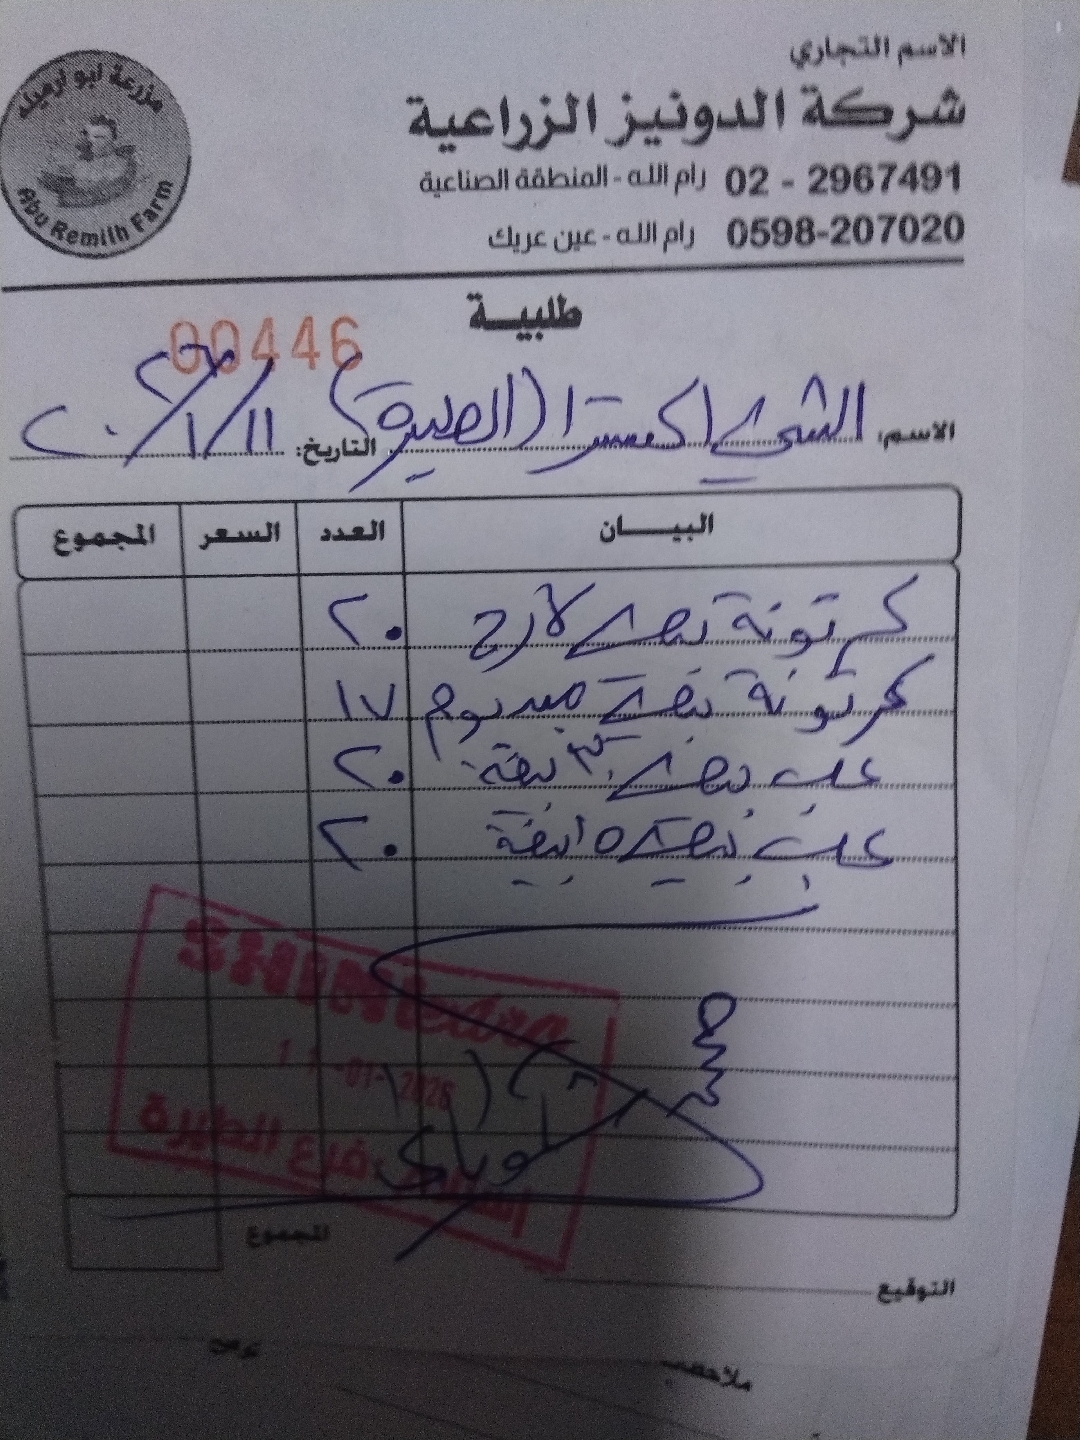 الاسم التجاري
شركة الدونيز الزراعية
02 - 2967491 رام الله - المنطقة الصناعية
0598-207020 رام الله - عين عريك
مزرعة ابو ارميله
Abu Remilh Farm
طلبية
00446
الاسم: الشني اكسترا (الطيرة) التاريخ: ١١/١/٢٠٢٦
البيــــان العدد السعر المجموع
كرتونة بيض لارج ٢٠
كرتونة بيض ميديوم ١٧
علب بيض ٣٠ بيضة ٢٠
علب بيض ١٥ بيضة ٢٠
SHINI extra
11 -01- 2026
استلام فرع الطيرة
المجموع
التوقيع